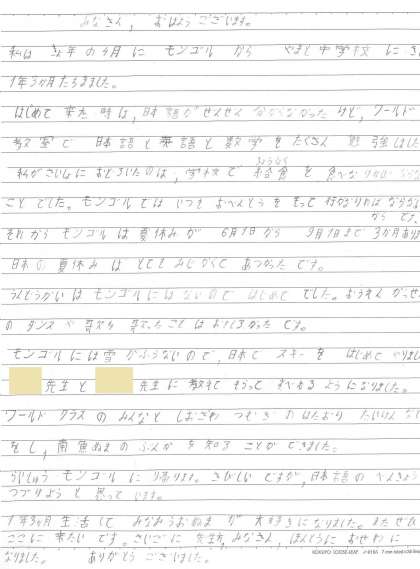 みなさん, おはようございます。
私は 去年の4月に モンゴルから やまと中学校に き
1年3か月たちました。
はじめて 来た 時は, 日本語が ぜんぜん 分からなかった けど, ワールド
教室で 日本語と 英語と 数学を たくさん 勉強しました
私が さいしょに おどろいたのは, 学校で 給食を 食べな
きゅうしょく
こと でした。モンゴルでは いつも おべんとうを もって 行かなければ ならな
から です。
それから モンゴルは 夏休みが 6月1日から 9月1日まで 3か月あり
日本の 夏休みは とても みじかくて あつかった です。
うんどうかいは モンゴルには ないので はじめて でした。おうえん がっせ
の ダンスや 歌を 歌ったことは おもしろかった です。
モンゴルには 雪が ふらないので, 日本で スキーを はじめて やりまし
先生と 先生に 教えて もらって すべれる ように なりました。
ワールド クラスの みんなと しおざわ つむぎの はたおり たいけん
をし, 南魚ぬまの ぶんかを 知る ことが できました。
らいしゅう モンゴルに 帰ります。さびしい ですが, 日本語の べんきょう
つづけようと 思って います。
1年3か月 生活して みなみうおぬまが 大好きに なりました。また ぜひ
ここに 来たい です。さいごに 先生方, みなさん, ほんとうに おせわに
なりました。 ありがとう ございました。
KOKUYO LOOSE-LEAF